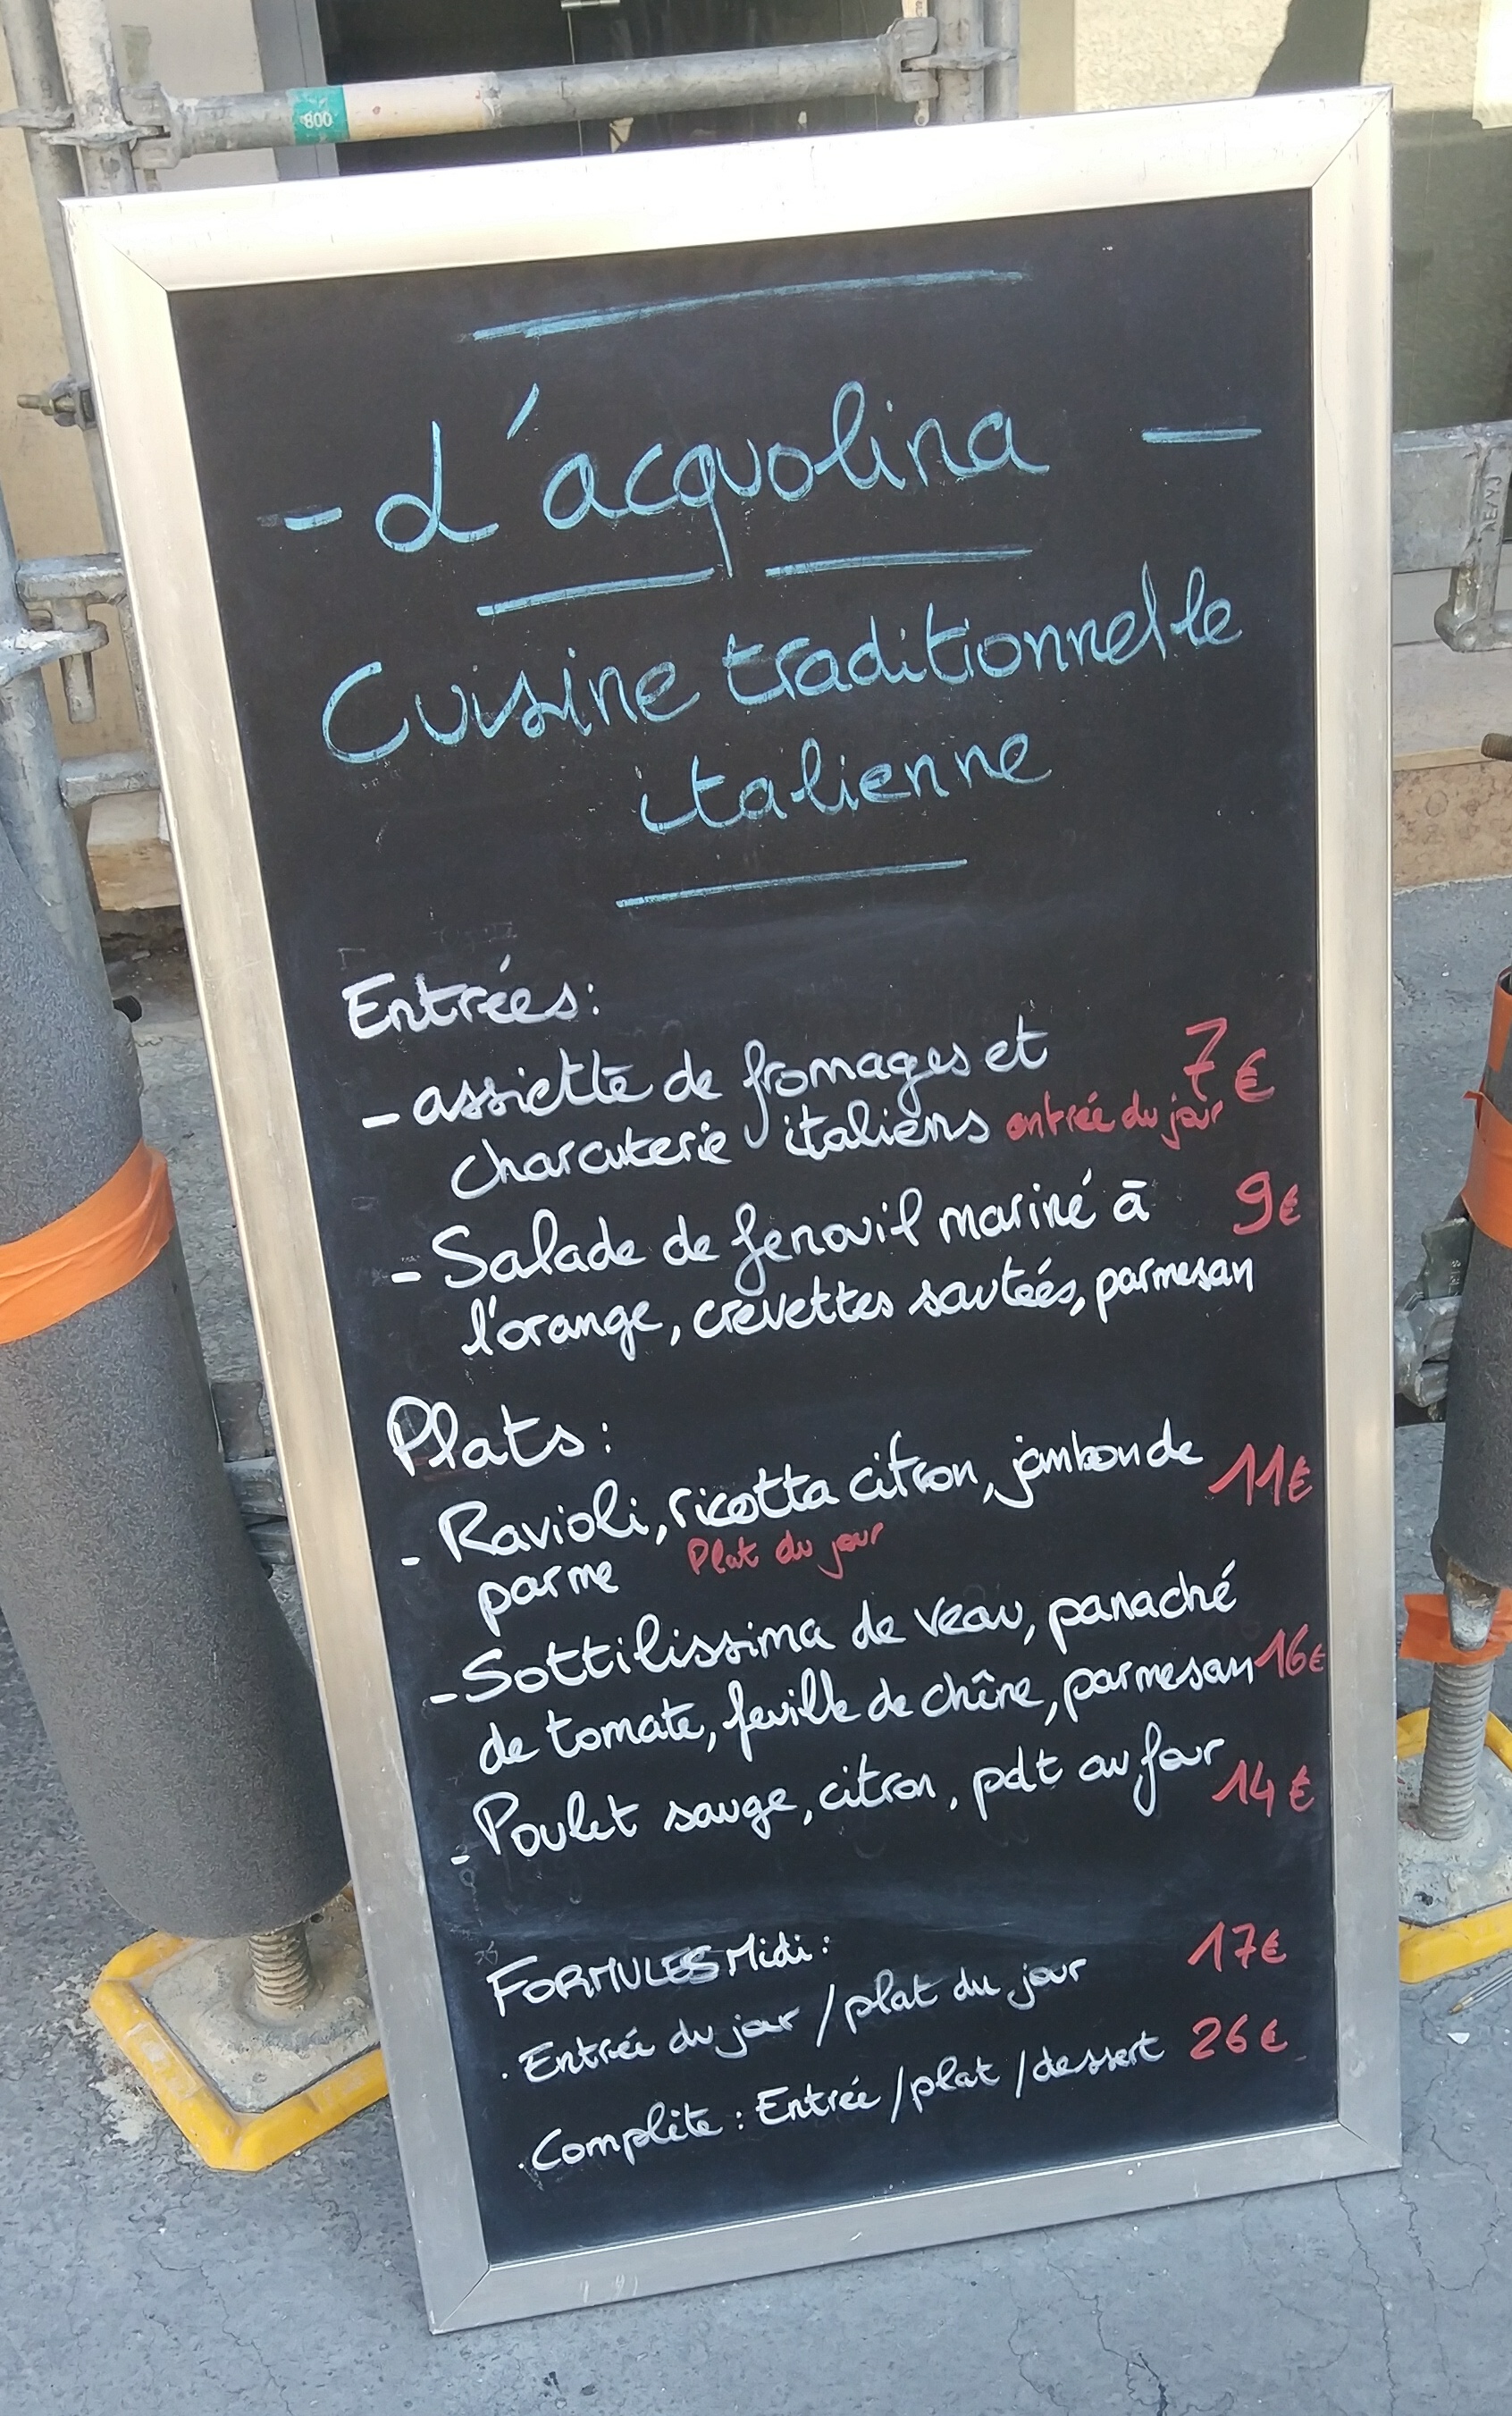 800
- L'acquolina -
Cuisine traditionnelle
italienne
Entrées:
- assiette de fromages et 7€
charcuterie italiens entrée du jour
- Salade de fenouil mariné à 9€
l'orange, crevettes sautées, parmesan
Plats:
- Ravioli, ricotta citron, jambon de 11€
parme Plat du jour
- Sottilissima de veau, panaché
de tomate, feuille de chêne, parmesan 16€
- Poulet sauge, citron, pdt au four 14€
FORMULES Midi:
. Entrée du jour / plat du jour 17€
. Complète : Entrée / plat / dessert 26€